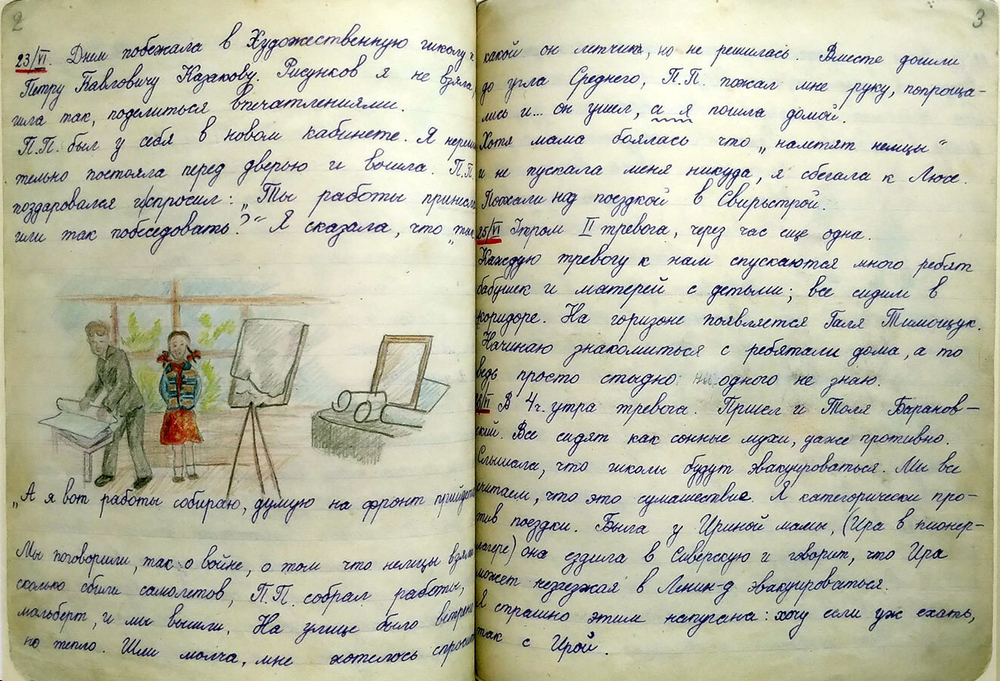 2
23/VI. Днем побежала в Художественную школу к
Петру Павловичу Казакову. Рисунков я не взяла,
шла так, поделиться впечатлениями.
П.П. был у себя в новом кабинете. Я нереши
тельно постояла перед дверью и вошла. П.П.
поздаровался и спросил: „Ты работы принесла
или так побеседовать?" Я сказала, что „так
„А я вот работы собираю, думую на фронт прийдется
Мы поговорили, так о войне, о том что немцы взяли
сколько сбили самолетов, П.П. собрал работы,
мольберт, и мы вышли. На улице было ветрено
но тепло. Шли молча, мне хотелось спросить
3
какой он летчик, но не решилась. Вместе дошли
до угла Среднего, П.П. пожал мне руку, попроща-
лись и... он ушел, а я пошла домой.
Хотя мама боялась что „налетят немцы"
и не пускала меня никуда, я сбегала к Люсе.
Поохали над поездкой в Свирьстрой.
25/VI Утром II тревога, через час еще одна.
Каждую тревогу к нам спускаются много ребят
бабушек и матерей с детьми; все сидим в
коридоре. На горизоне появляется Галя Тимощук.
Начинаю знакомиться с ребятали дома, а то
ведь просто стыдно ни одного не знаю.
В 4 ч. утра тревога. Пришел и Толя Баранов-
ский. Все сидят как сонные мухи, даже противно.
Слышала, что школы будут эвакуироваться. Мы все
считаем, что это сумашествие. Я категорически про-
тив поездки. Была у Ириной мамы, (Ира в пионер-
лагере) она ездила в Сиверскую и говорит, что Ира
может незезжая в Ленин-д эвакуироваться.
Я страшно этим напугана: хочу если уж ехать,
так с Ирой.